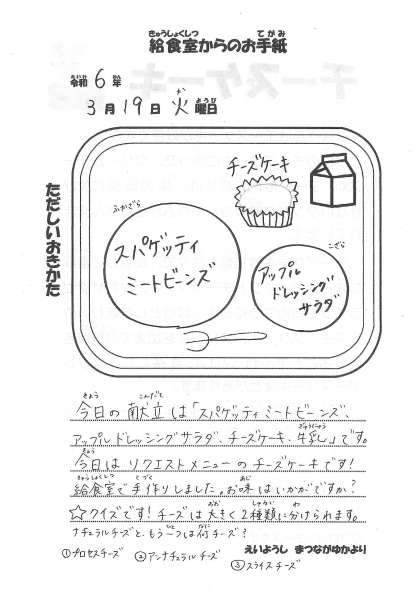 きゅうしょくしつ てがみ
給食室からのお手紙
れいわ ねん
令和6年
か ようび
3月19日 火曜日
ただしいおきかた
チーズケーキ
ふかざら
スパゲッティ
ミートビーンズ
こざら
アップル
ドレッシング
サラダ
きょう こんだて
今日の献立は「スパゲッティミートビーンズ、
ぎゅうにゅう
アップルドレッシングサラダ、チーズケーキ、牛乳」です。
きょう
今日はリクエストメニューのチーズケーキです!
きゅうしょくしつ てづく あじ
給食室で手作りしました。お味はいかがですか?
おお しゅるい わ
☆クイズです!チーズは大きく2種類に分けられます。
ひと なに
ナチュラルチーズと、もう一つは何チーズ?
①プロセスチーズ ②アンナチュラルチーズ
③スライスチーズ
えいようし まつながゆかより